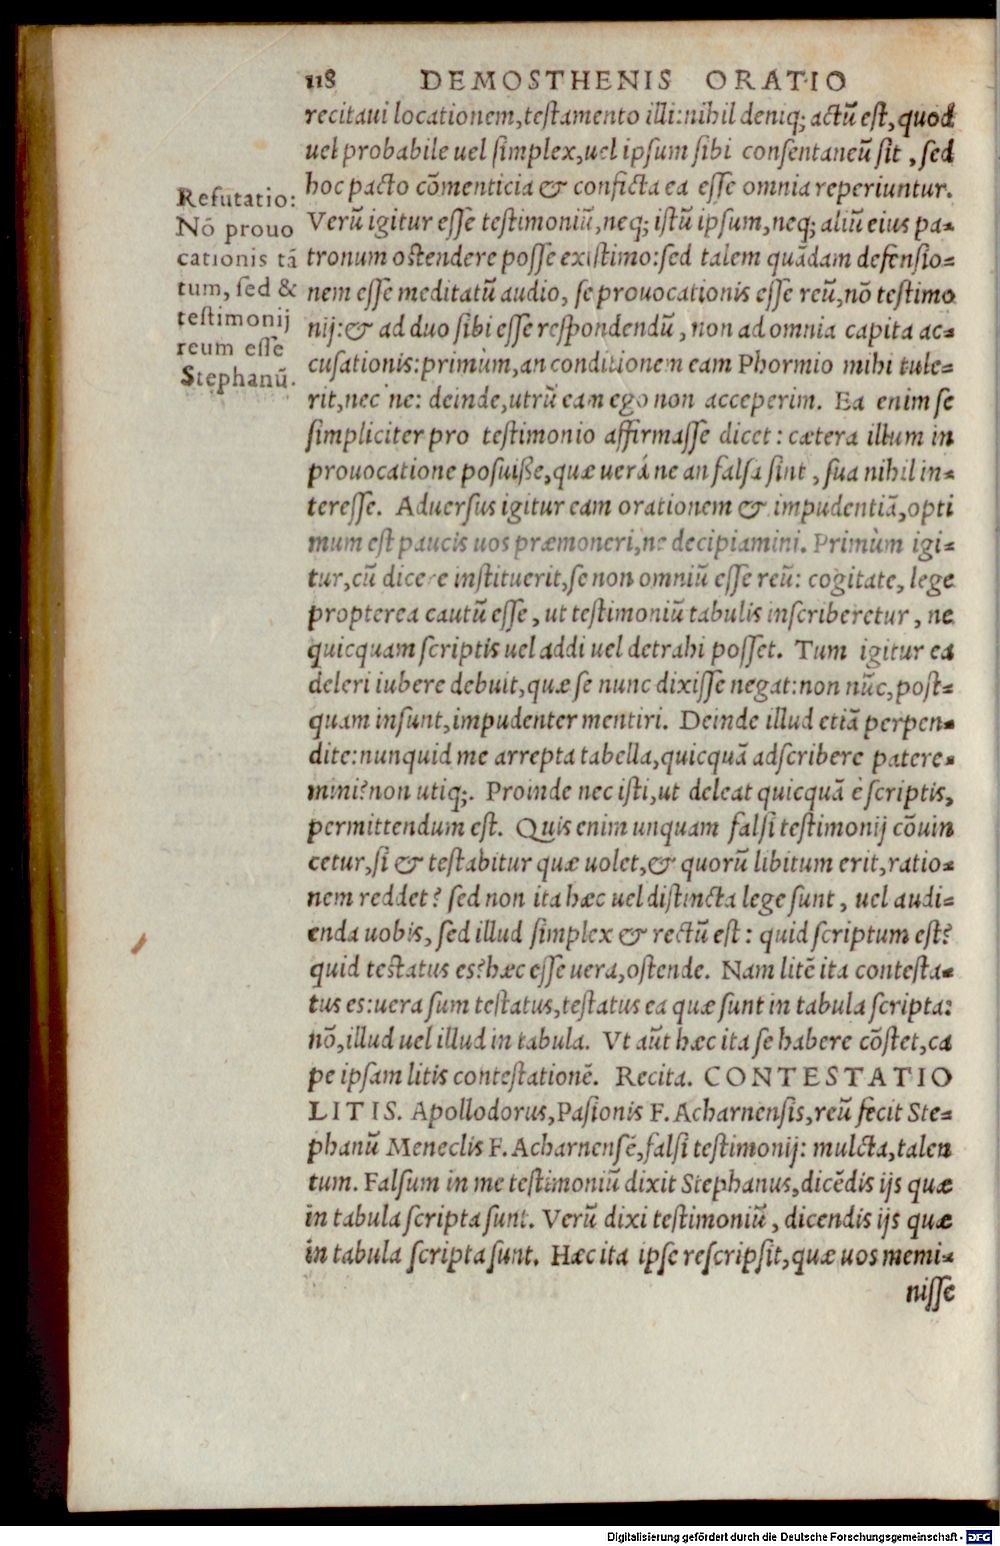 118 DEMOSTHENIS ORATIO
recitaui locationem, testamento illi: nihil deniq; actũ est, quod
uel probabile uel simplex, uel ipsum sibi consentaneũ sit, sed
hoc pacto cõmenticia & conficta ea esse omnia reperiuntur.
Verũ igitur esse testimoniũ, neq; istũ ipsum, neq; aliũ eius pa-
tronum ostendere posse existimo: sed talem quãdam defensio-
nem esse meditatũ audio, se prouocationis esse reũ, nõ testimo
nij: & ad duo sibi esse respondendũ, non ad omnia capita ac-
cusationis: primùm, an conditionem eam Phormio mihi tule-
rit, nec ne: deinde, utrũ eam ego non acceperim. Ea enim se
simpliciter pro testimonio affirmasse dicet: cætera illum in
prouocatione posuiße, quæ uerá ne an falsa sint, sua nihil in-
teresse. Aduersus igitur eam orationem & impudentiã, opti
mum est paucis uos præmoneri, ne decipiamini. Primùm igi-
tur, cũ dicere instituerit, se non omniũ esse reũ: cogitate, lege
propterea cautũ esse, ut testimoniũ tabulis inscriberetur, ne
quicquam scriptis uel addi uel detrahi posset. Tum igitur ea
deleri iubere debuit, quæ se nunc dixisse negat: non nũc, post-
quam insunt, impudenter mentiri. Deinde illud etiã perpen-
dite: nunquid me arrepta tabella, quicquã adscribere patere-
mini? non utiq;. Proinde nec isti, ut deleat quicquã è scriptis,
permittendum est. Quis enim unquam falsi testimonij cõuin
cetur, si & testabitur quæ uolet, & quorũ libitum erit, ratio-
nem reddet? sed non ita hæc uel distincta lege sunt, uel audi-
enda uobis, sed illud simplex & rectũ est: quid scriptum est?
quid testatus es? hæc esse uera, ostende. Nam litẽ ita contesta-
tus es: uera sum testatus, testatus ea quæ sunt in tabula scripta:
nõ, illud uel illud in tabula. Vt aũt hæc ita se habere cõstet, ca
pe ipsam litis contestationẽ. Recita. CONTESTATIO
LITIS. Apollodorus, Pasionis F. Acharnensis, reũ fecit Ste-
phanũ Meneclis F. Acharnensẽ, falsi testimonij: mulcta, talen
tum. Falsum in me testimoniũ dixit Stephanus, dicẽdis ijs quæ
in tabula scripta sunt. Verũ dixi testimoniũ, dicendis ijs quæ
in tabula scripta sunt. Hæc ita ipse rescripsit, quæ uos memi-
nisse
Refutatio:
Nõ prouo
cationis tã
tum, sed &
testimonij
reum esse
Stephanũ.
Digitalisierung gefördert durch die Deutsche Forschungsgemeinschaft - DFG